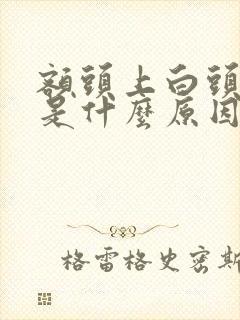 額頭上白頭
是什麼原因
格雷格史密斯